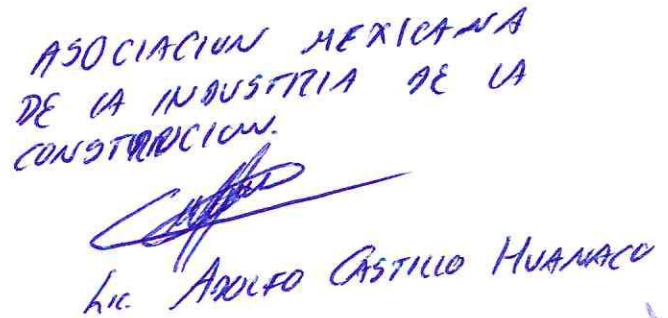 ASOCIACION MEXICANA
DE LA INDUSTRIA DE LA
CONSTRUCCION.
Lic. ADOLFO CASTILLO HUANACO